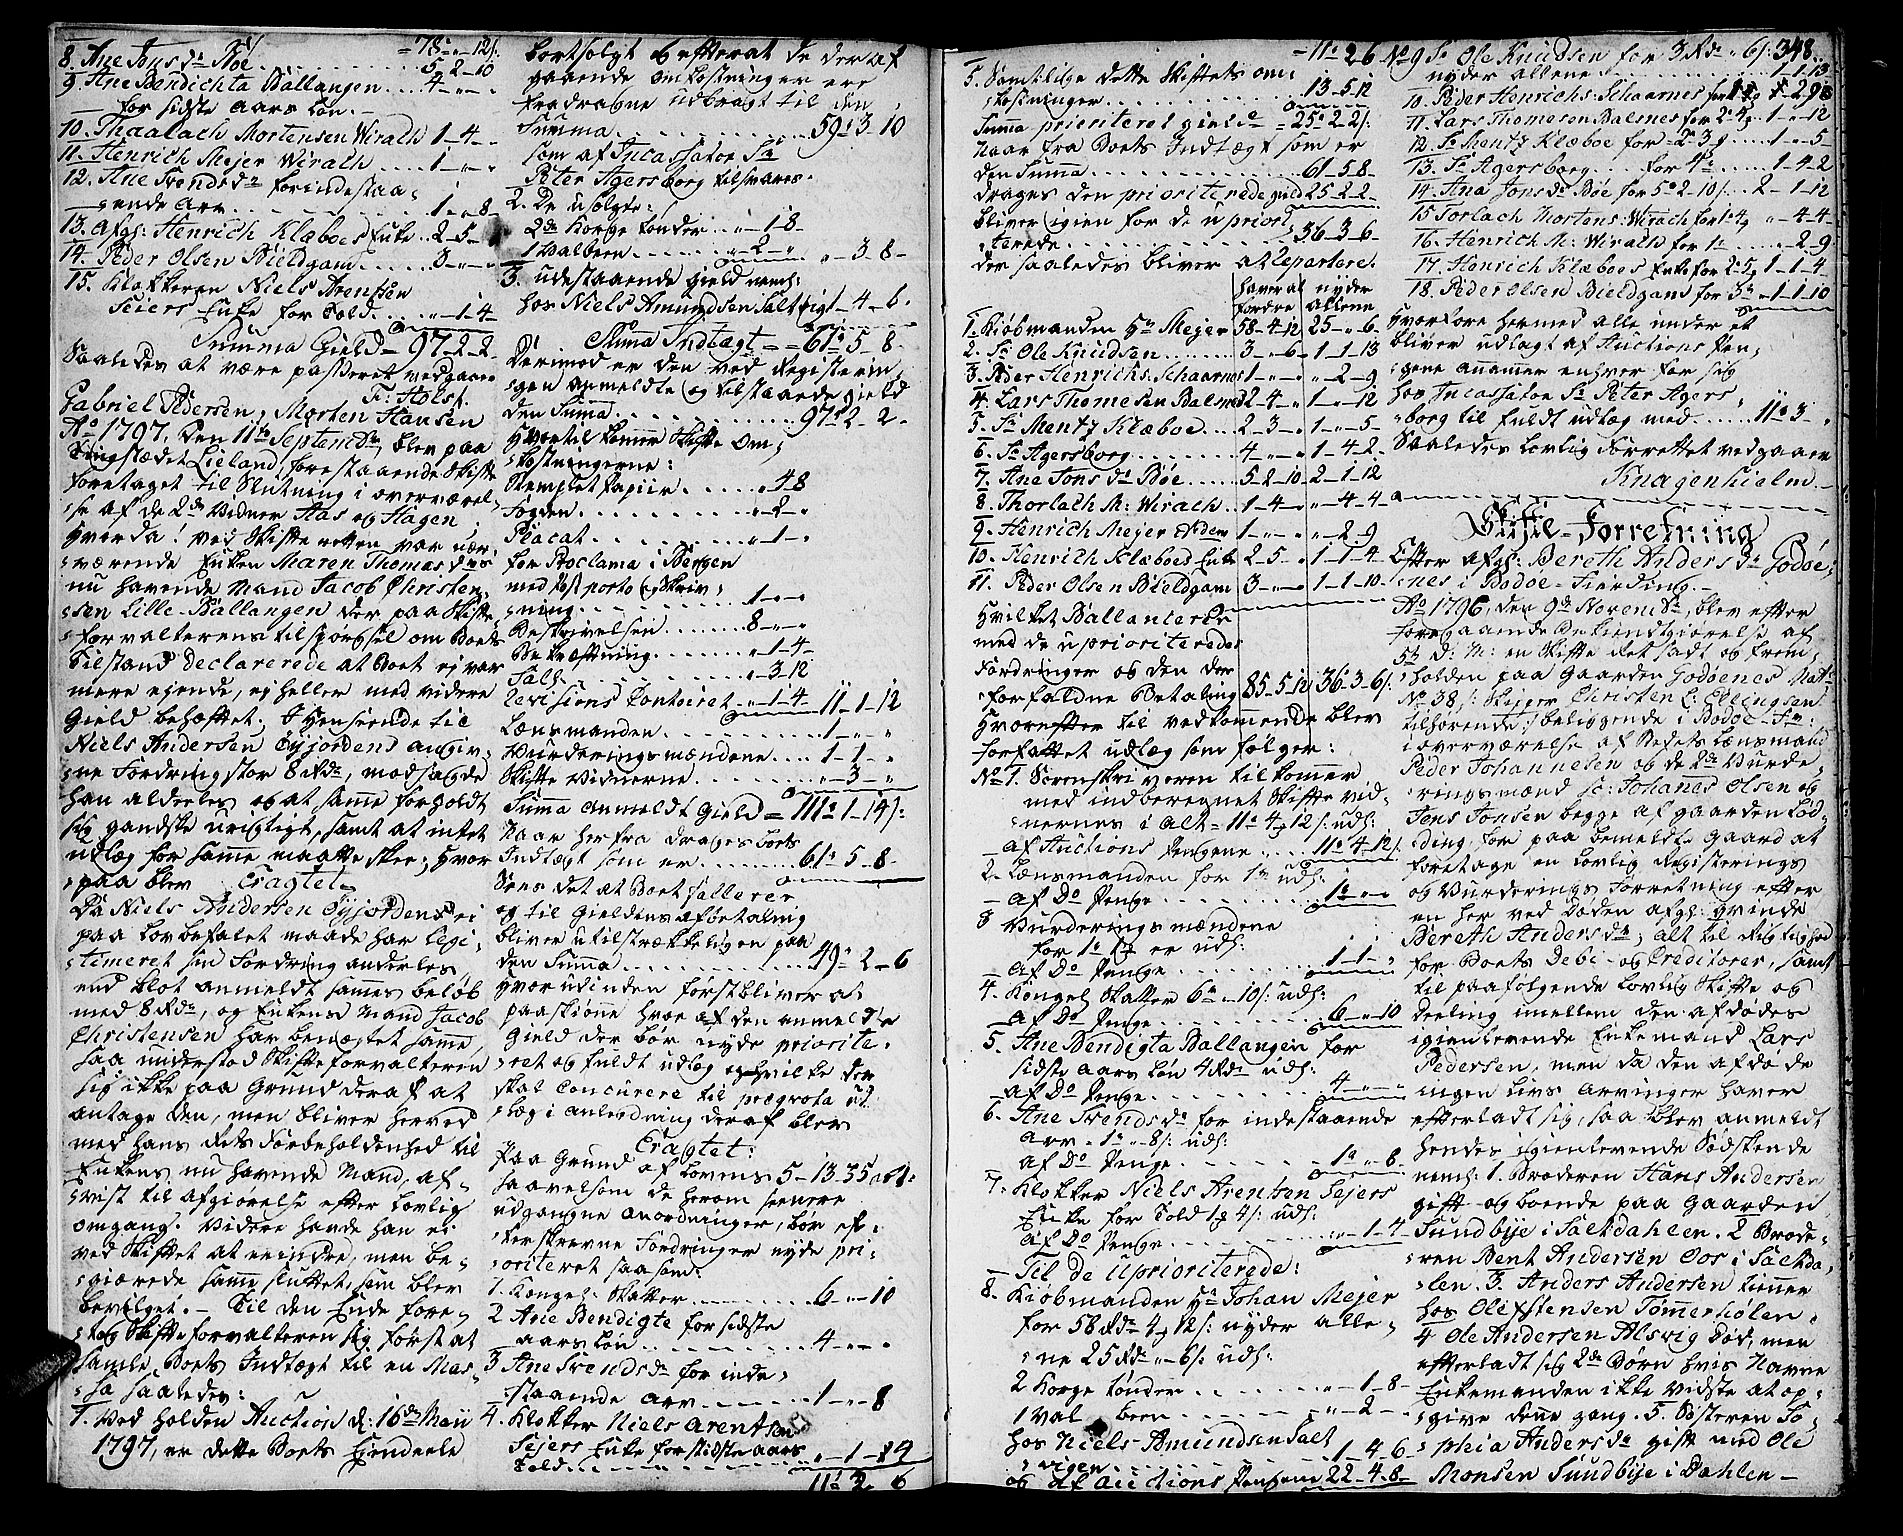 8. Ane Jons dr Bøe . . . 5-2-10
= 78 = " - 12 s:
9. Ane Bendichta Ballangen . . . 4 - " - "
for sidste Aars løn. -
10. Thaalach Mortensen Wirach 1-4- "
11. Henrich Mejer Wirach . . . . 1 - " - "
12. Ane Svendsdr for indestaa=
=ende Arv . . . . . 1 - " 8 -
13. Afg: Henrich Klæboes Enke . . 2-5- "
14. Peder Olsen Bieldgam . . . . 3 - " - "
15. Klokkeren Niels Arentsen
Seiers Enke for Told . . . " - 1-4-
Summa Gield = 97-2-2-
Saaledes at være passeret vedgaaer
F: Holst.
Gabriel Pedersen, Morten Hansen
Ao 1797, den 11te Septembr, blev paa
Tingstædet Lieland, forestaaende Skifte
foretaget til Slutning i overværel=
=se af de 2de Vidner Aas og Hagen
Hvorda! ved Skifte retten var nær=
=værende Enken Maren Thomasdrs
nu havende Mand Jacob Christen=
=sen Lille-Ballangen der paa Skifte=
=forvalterens tilspørgsel om Boets
Tilstand declarerede at Boet ej var
mere ejende, ej heller med videre
Gield behæftet. I Henseende til
Niels Andersen Øyjordens angiv=
=ne Fordring stor 8 Rdr, modsagde
han aldeeles og at samme forholdt
sig gandske urigtigt, samt at intet
udlæg for samme maatte skee; hvor
=paa blev Eragtet
Da Niels Andersen Øyjorden ei
paa lovbefalet maade har legi=
=timeret sin Fordring anderles
end blot anmeldt sammes beløb
med 8 Rdr, og Enkens Mand Jacob
Christensen har benægtet samme,
saa understod Skifteforvalteren
sig ikke paa Grund deraf at
antage den, men bliver herved
med hans Rets Forbeholdenhed til
Enkens nu havende Mand, af=
=vist til afgiørelse efter Lovlig
omgang. Videre havde han ei
ved Skiftet at erindre, men be=
=giærede samme sluttet, som blev
bevilget. - Til den Ende fore=
=tog Skifteforvalteren sig først at
samle Boets Indtægt til en Mas=
=sa saaledes:
1. Ved holden Auction d: 16de Maii
1797, er dette Boets Ejendeele
bortsolgt og efterat de deraf
gaaende omkostninger ere
fradragne udbragt til den
Summa . . . . . . . 59 = 3-10
som af Incassator Sr
Peter Agersborg tilsvares.
2. De usolgte:
2de Korge tønder . . " - 1-8-
1 Valbeen . . . . " - 2 - " . . " - 3-8-
3. udestaaende Gield nemlig:
hos Niels Amundsen Saltvig 1-4-6-
Summa Indtægt = = 61 = 5-8-
Derimod er den ved Registerin=
=gen anmeldte og tilstaaede gield
den Summa . . . . . . . 97 = 2-2-
Hvortil kommer Skifte om=
=kostningerne:
Stemplet Papiir . . . . " 48
Fogden . . . . . " - 2 - "
Placat . . . . . . " - 1 - "
for Proclama i Bergen
med Postporto og Skriv=
=ning . . . . . . 1 - " - "
Beskrivelsen . . . . . 8 - " - "
Bekræftning . . . . . " - 1-4-
Salg . . . . . . " - 3-12
Revisions Contoiret . . " - 1-4- 11-1-12
Lænsmanden . . . . . . . 1 - " - "
Vurderingsmændene . . . . 1-1- "
Skifte Vidnerne . . . . . . " - 3 - "
Summa anmeldt Gield = 111 = 1-14 s:
Naar herfra drages Boets
Indtægt som er . . . . . 61 = 5-8-
Sees det at Boet fallerer
og til Gieldens afbetaling
bliver utilstrækkelig en paa
den Summa . . . . . . . 49 = 2-6
hvorudinden først bliver at
paaskiønne hvor af den anmeldte
Gield der bør nyde priorite=
=ret og fuldt udlæg og hvilke der
skal concurere til prograta ud=
=læg i anledning deraf blev
Eragtet:
Paa Grund af Lovens 5-13-35 Art:
saavelsom de herom seenere
udgangne anordninger, bør ef=
=terskrevne Fordringer nyde pri=
=oriteret saasom:
1. Kongel: Skatter . . . . . 6 - " - 10
2 Ane Bendigte for sidste
aars løn . . . . . . . 4 - " - "
3 Ane Svendsdr for inde=
=staaende arv . . . . . . 1 - " - 8
4. Klokker Niels Arentsen
Sejers Enke for sidste aars
Told . . . . . . . . . " - 1-4
11 = 3 6
= 11 = 2 6
5. Samtlige dette Skiftets om=
=kostninger . . . . . . . 13-5-12
Summa prioriteret gield = 25 = 2-2 s:
Naar fra Boets Indtægt som er
den Summa . . . . . . . 61-5-8-
drages den prioriterede gield 25-2-2-
bliver igien for de u priori
=terede . . . . . . . . = 36-3-6-
der saaledes bliver at Repartere.
haver at fordre | nyder allene
1. Kiøbmanden Hr Mejer 58-4-12 25 - " - 6-
2. Sr Ole Knudsen . . . . 3 - " - 6 - 1-1-13
3. Peder Henrichs: Schaarnes 1 - " - " " - 2-9
4. Lars Thomesen Balsnes 2-4- " 1 - " - 12
5. Sr Mentz Klæboe . . . 2-3- " 1 - " - 5-
6. Sr Agersborg . . . . . 4 - " - " 1-4-2-
7. Ane Jons dr Bøe . . . 5-2-10 2-1-12
8. Thorlach M: Wirach . 1-4- " " - 4-4
9. Henrich Mejer ibidem 1 - " - " " - 2-9
10. Henrich Klæboes Enke 2-5- " 1-1-4-
11. Peder Olsen Bieldgam 3 - " - " 1-1-10-
Hvilket Ballanterer
med de uprioriterede
Fordringer og den der=
=forfaldne Betaling 85-5-12 36-3-6 s:
Hvorefter til vedkommende blev
forfattet udlæg som følger:
No 1. Sorenskriveren tilkommer
med indberegnet Skifte vid=
=nernes i alt = 11 = 4-12 s: udl:
af Auctions Pengene . . . 11 = 4-12 s:
2. Lænsmanden for 1 = udl:
af Do Penge . . . . . . 1 = " - "
3 Vurderings mændene
for 1 = 1 = er udl:
af Do Penge . . . . . . 1-1- "
4. Kongel Skatter 6 = " - 10 s: udl:
af Do Penge . . . . . . 6 - " - 10
5. Ane Bendigta Ballangen for
sidste aars løn 4 Rdr udl:
af Do Penge . . . . . . 4 - " - "
6. Ane Svends dr for indestaaende
arv = 1 = " - 8 s: udl:
af Do Penge . . . . . . 1 = " 8-
7. Klokker Niels Arentsen Sejers
Enke for Told 1 4 s: udl:
af Do Penge . . . . . . " - 1-4
Til de uprioriterede:
8. Kiøbmanden Hr Johan Mejer
for 58 Rdr 4 12 s: nyder alle=
=ne 25 Rdr " - 6 s: udl:
2 Korge tønder . . . . " - 1-8-
1 Val been . . . . . " - 2 -
hos Niels Amundsen Salt=
=vigen . . . . . . . 1-4-6-
og af Auctions Pengene 22-4-8-
348.
No 9 Sr Ole Knudsen for 3 Rdr " 6 s:
nyder allene . . . . . . 1-1-13
10. Peder Henrichs: Schaarnes for 1 " - 2 9
11. Lars Thomesen Balsnes for 2 = 4 1 - " - 12
12. Sr Mentz Klæboe for = 2 3 . . . 1 - " - 5-
13. Sr Agersborg . . . for 4 = . . . 1-4-2
14. Ana Jons dr Bøe for 5 = 2-10 s: . . 2-1-12
15 Torlach Mortens: Wirach for 1 = 4 " - 4-4
16. Henrich M: Wirach for 1 = . . . " - 2-9
17. Henrich Klæboes Enke for 2 = 5 1-1-4-
18. Peder Olsen Bieldgam for 3 = 1-1-10
Hvorfore hermed alle under et
bliver udlagt af Auctions Pen=
=gene anammer enhver for sig
hos Incassator Sr Peter Agers=
=borg til fuldt udlæg med . . . . 11 = 3 - "
Saaledes lovlig Forrettet vedgaaer
Knagenhielm
Skifte-Forretning
Efter afg: Bereth Anders dr Godøe=
=nes i Bodøe-Fierding.
Ao 1796, den 9de Novembr, blev efter
foregaaende Bekiendtgiørelse af
5te d: M: en Skifte Ret sadt og frem=
=holden paa Gaarden Godøenes Matr
No 38/: Skipper Christen L: Ellingsen
tilhørende:/ beliggende i Bodøe-Fr:
i overværelse af Stedets Lænsmand
Peder Johannesen og de 2de Vurde=
=rings mænd so: Johanes Olsen og
Jens Jonsen begge af gaarden Lød=
=ding, for paa bemeldte Gaard at
foretage en lovlig Registerings
og Vurderings Forretning efter
en her ved Døden afg: Qvinde
Bereth Anders dr; alt til Rigtighed
for Boets Debi- og Creditorer, samt
til paafølgende lovlig Skifte og
Deeling imellem den afdødes
igienlevende Enkemand Lars
Pedersen, men da den afdøde
ingen Livs Arvinger haver
efterladt sig, saa blev anmeldt
hendes igienlevende Sødskende
neml: 1. Broderen Hans Andersen
gift og boende paa Gaarden
Sundbye i Saltdahlen. 2 Brode=
=ren Bent Andersen Oos i Saltda=
=len. 3. Anders Andersen tiener
hos Ole Estensen Tømmerholen.
4 Ole Andersen Alsvig død, men
efterladt sig 2de Børn hvis Navne
Enkemanden ikke vidste at op=
=give denne gang. 5. Søsteren So=
=phia Anders dr gift med Ole
Monsen Sundbye i Dahlen -